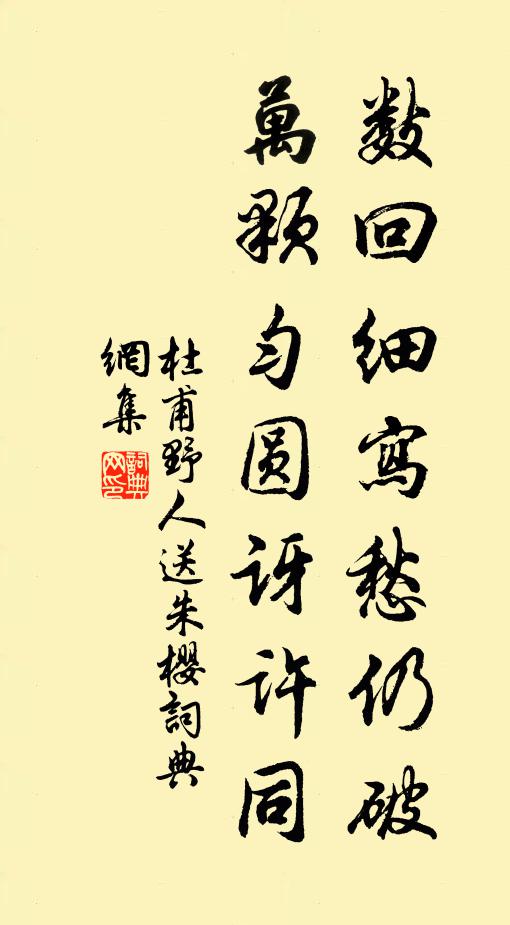 數回细寫愁仍破
萬顆匀圆訝許同
杜甫野人送朱櫻詞典
網集
詞典
网印